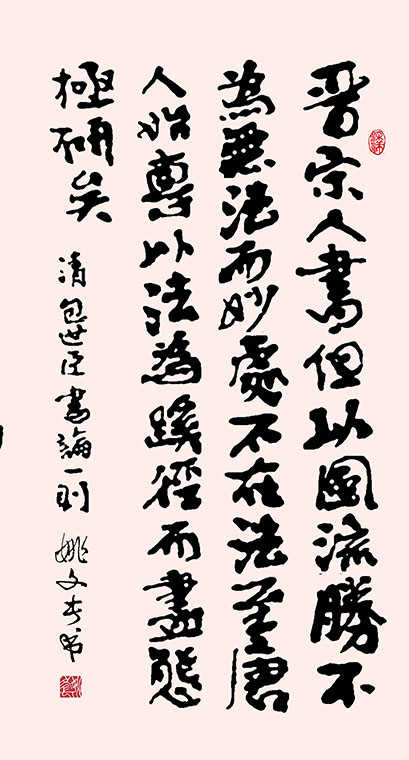 晋宋人書但以風流勝不
為無法而妙處不在法至唐
人始專以法為蹊徑而盡態
極研矣
清包世臣書論一則 姚文书